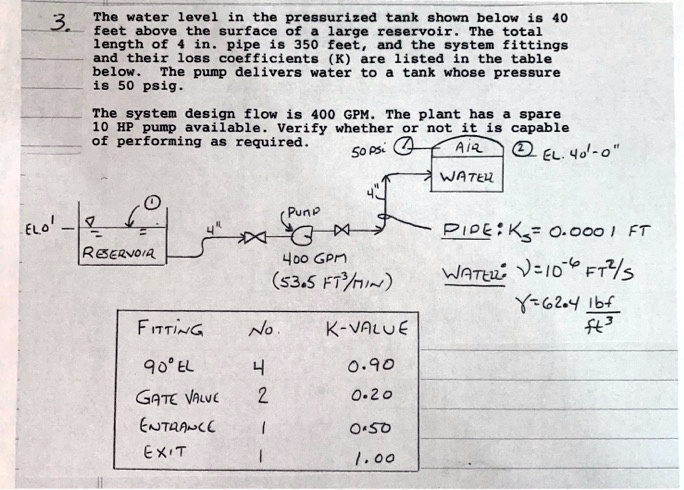 3. The water level in the pressurized tank shown below is 40
feet above the surface of a large reservoir. The total
length of 4 in. pipe is 350 feet, and the system fittings
and their loss coefficients (K) are listed in the table
below. The pump delivers water to a tank whose pressure
is 50 psig.
The system design flow is 400 GPM. The plant has a spare
10 HP pump available. Verify whether or not it is capable
of performing as required.
50 PSi
AIR
② EL. 40'-0"
WATER
4"
①
PUMP
EL0'
4"
PIPE: Ks= 0.0001 FT
RESERVOIR
400 GPM
(53.5 FT³/MIN)
WATER: ν=10⁻⁶ FT²/S
γ=62.4 lbf/ft³
FITTING No. K-VALUE
90° EL 4 0.90
GATE VALVE 2 0.20
ENTRANCE 1 0.50
EXIT 1 1.00